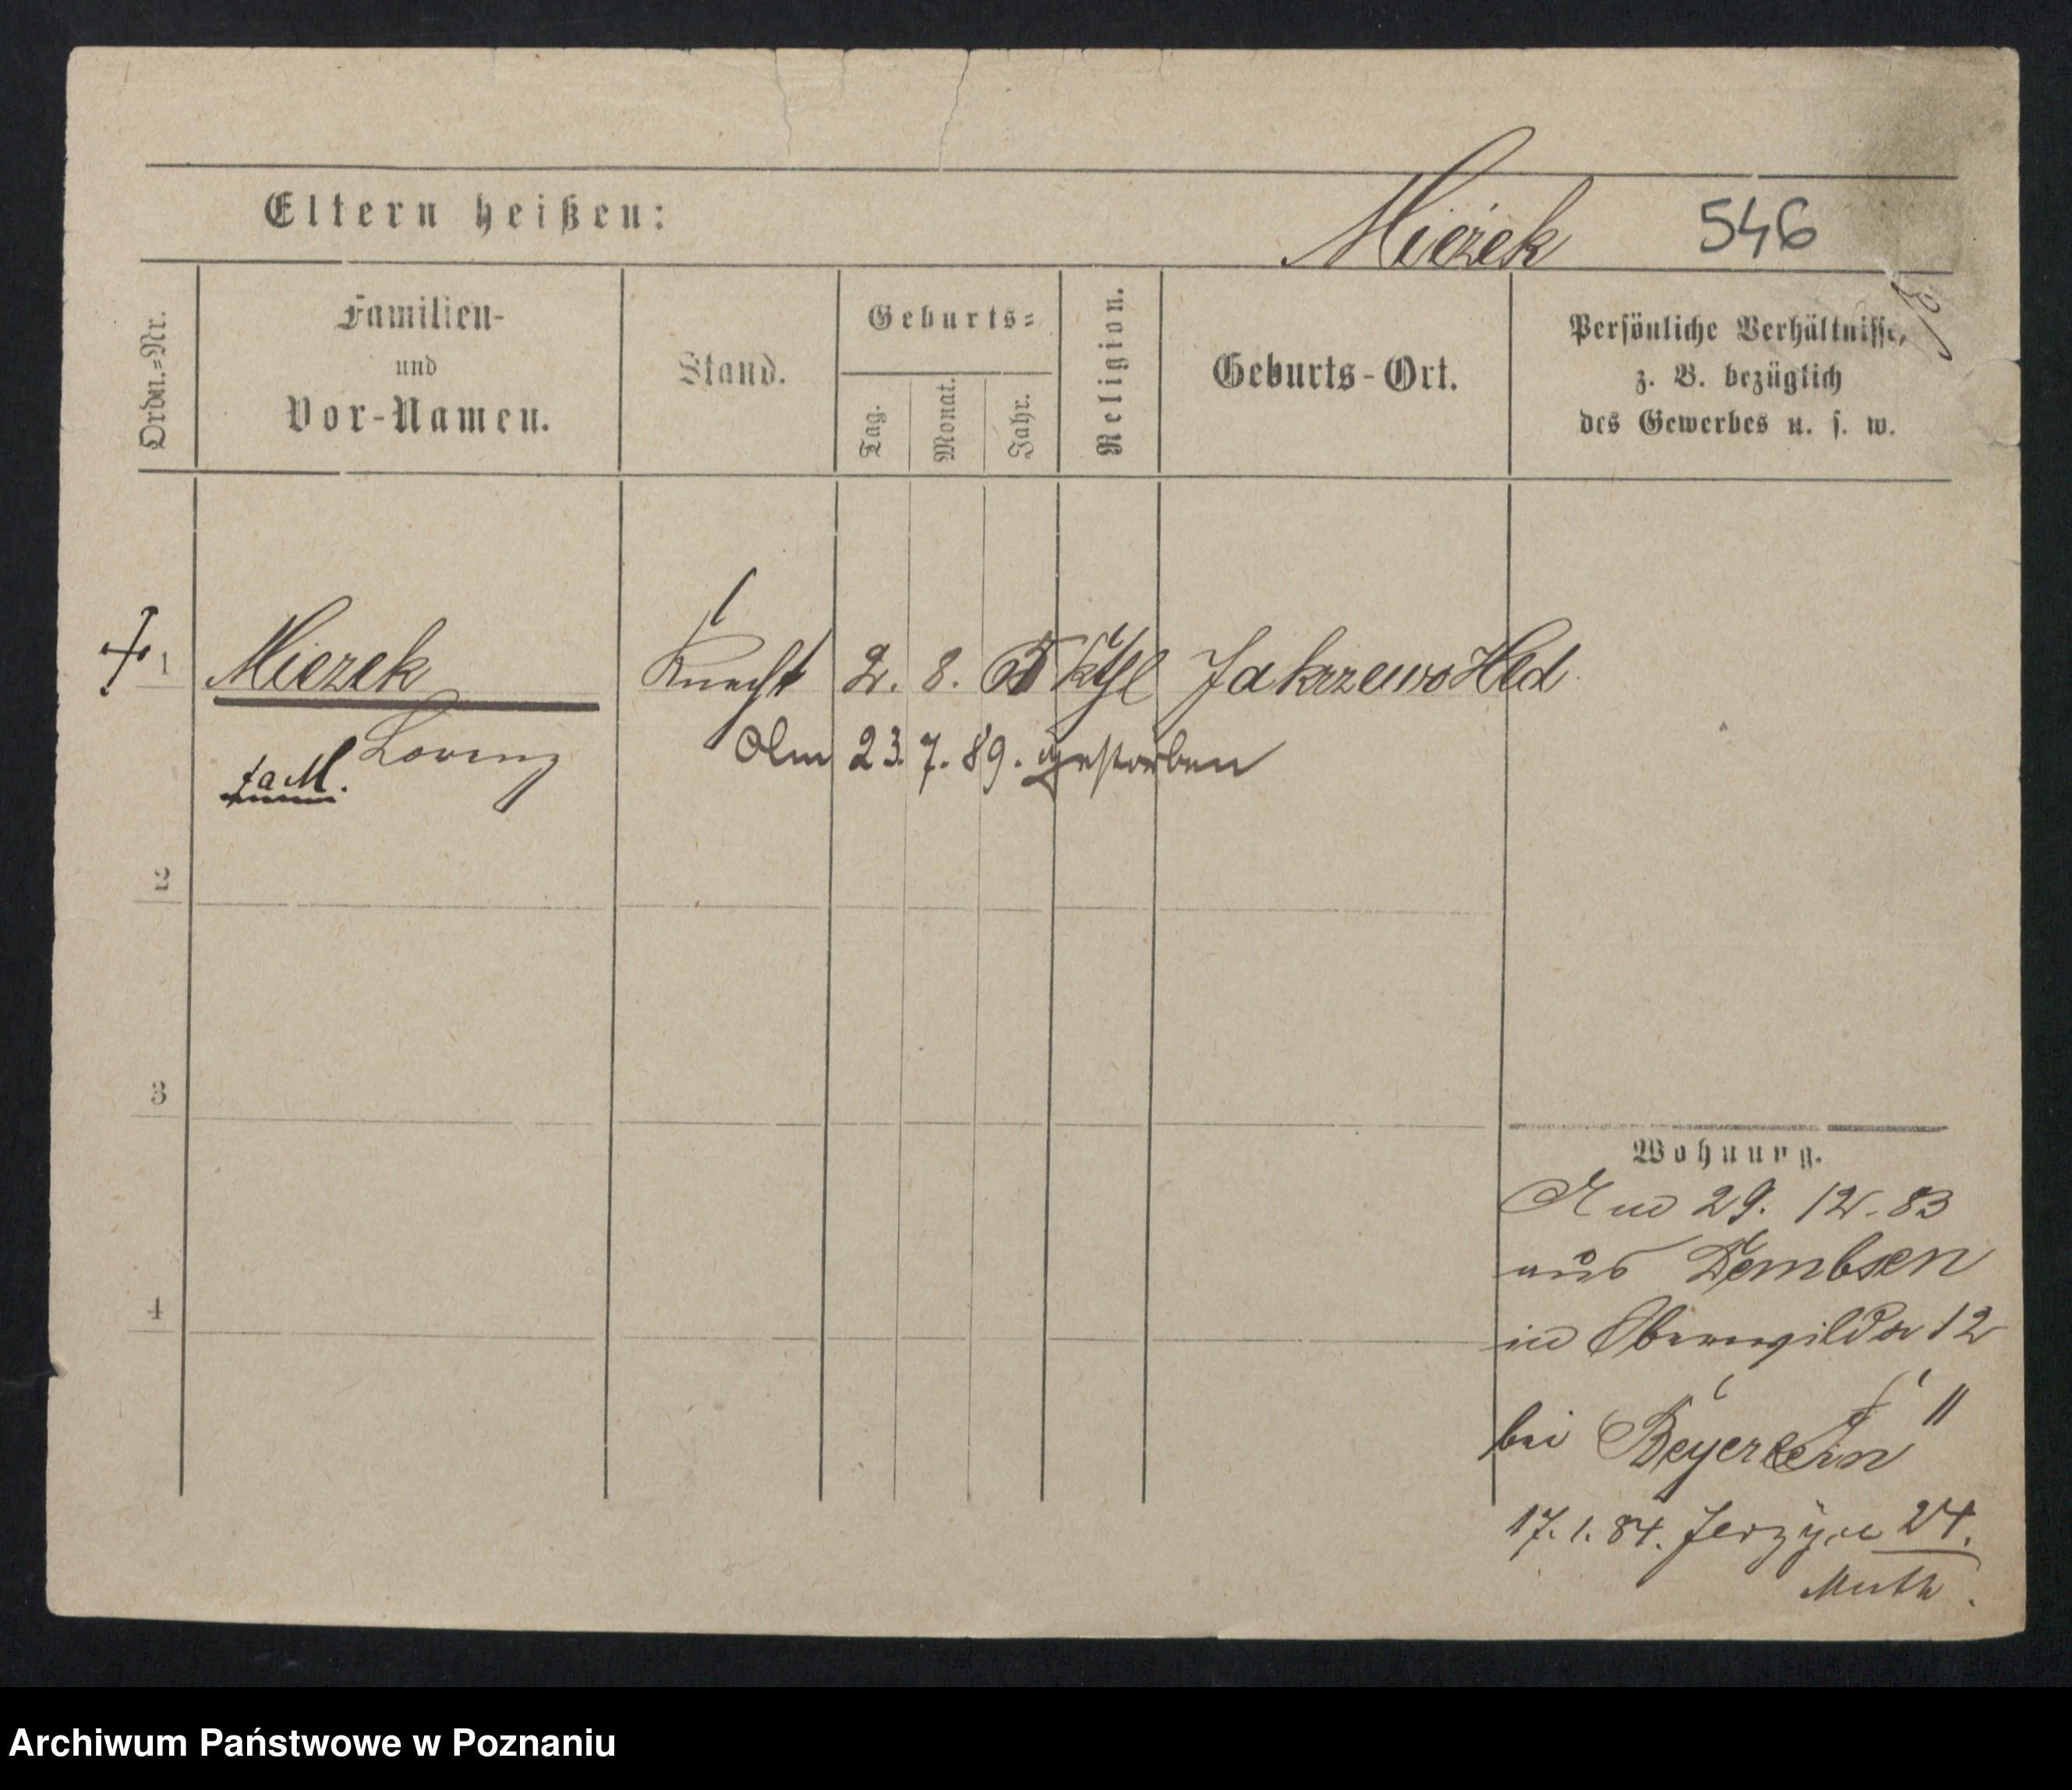 Eltern heißen:
Miezek 546
Ordn.=Nr.
Familien-
und
Vor-Namen.
Stand.
Geburts=
Tag.
Monat.
Jahr.
Religion.
Geburts-Ort.
Persönliche Verhältnisse,
z. B. bezüglich
des Gewerbes u. s. w.
1 Miezek Knecht 2. 8. kthl
Lorenz
Am 23. 7. 89. gestorben
2
3
4
Wohnung.
29. 12. 83
aus Dembsen
in Oberwilda 12
bei
17. 1. 84. 24.
Muth.
Archiwum Państwowe w Poznaniu